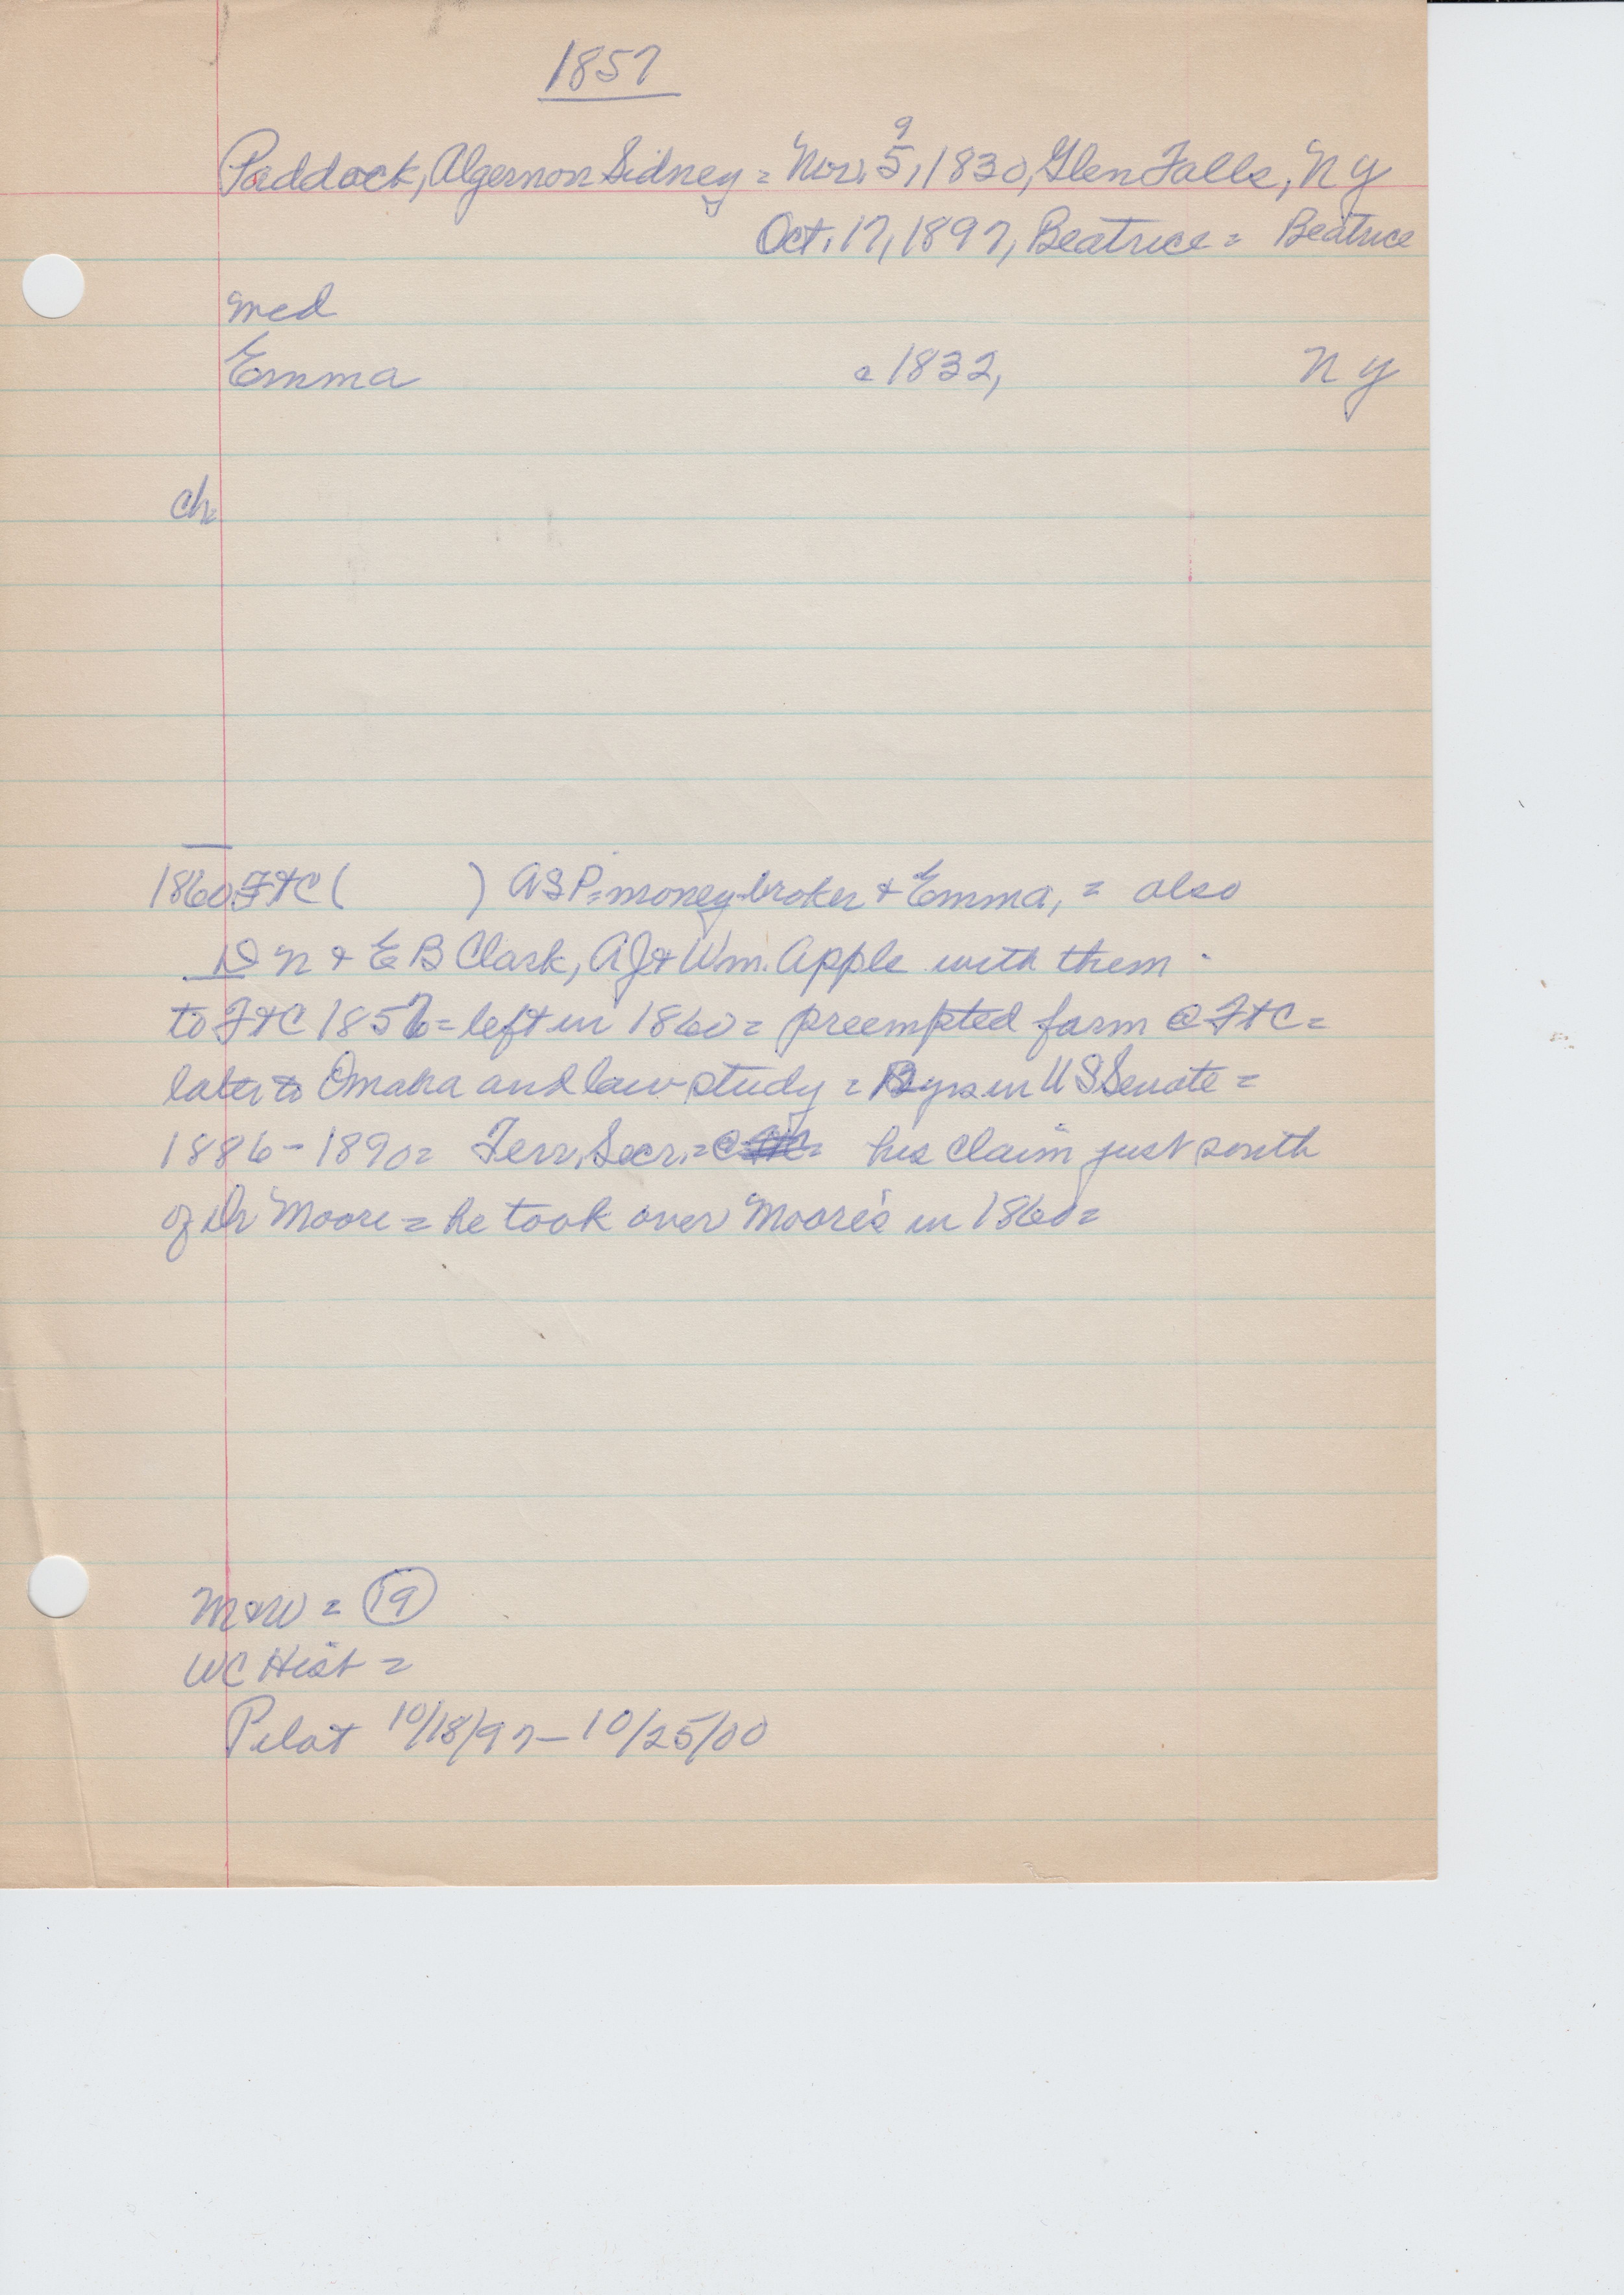 1857
9
Paddock, Algernon Sidney = Nov. 5, 1830, Glen Falls, NY
Oct. 17, 1897, Beatrice = Beatrice
med
Emma c 1832, NY
ch
1860 FtC ( ) ASP = money broker & Emma, = also
D N & E B Clark, AJ & Wm. Apple with them
to FtC 1857 = left in 1860 = preempted farm @ FtC =
later to Omaha and law study = 12 yrs in US Senate =
1886 - 1890 = Terr. Secr. = his claim just south
of Dr Moore = he took over Moore's in 1860 =
M&W = 19
WC Hist =
Pilot 10/18/97 - 10/25/00